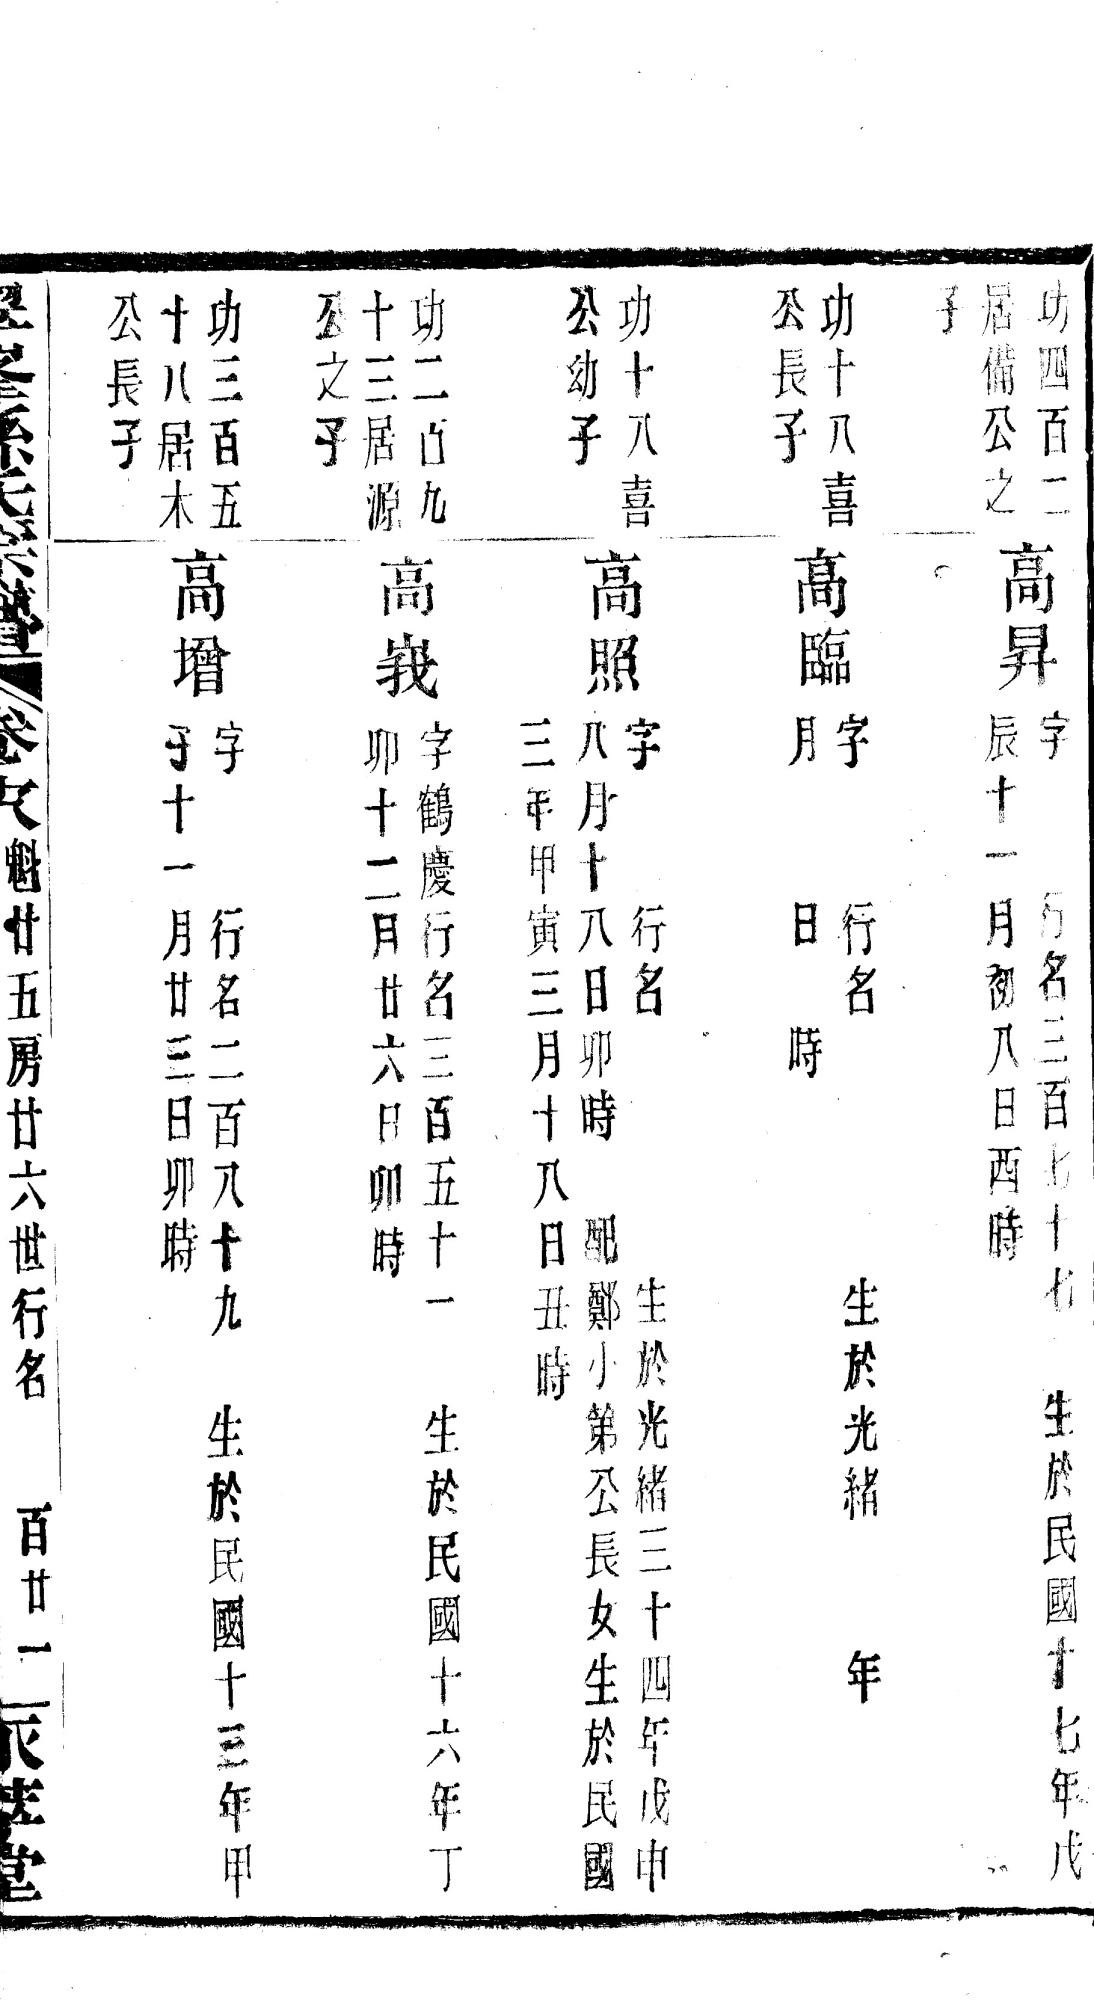 功四百二
居備公之
子
高昇
字 行名三百七十七 生於民國十七年戊
辰十一月初八日酉時
功十八喜
公長子
高臨
字 行名 生於光緒 年
月 日 時
功十八喜
公幼子
高照
字 行名 生於光緒三十四年戊申
八月十八日卯時 配鄭小第公長女生於民國
三年甲寅三月十八日丑時
功二百九
十三居源
公之子
高峩
字鶴慶行名三百五十一 生於民國十六年丁
卯十二月廿六日卯時
功三百五
十八居木
公長子
高增
字 行名二百八十九 生於民國十三年甲
子十一月廿三日卯時
孫氏宗譜 卷 魁廿五房廿六世行名 百廿一 堂